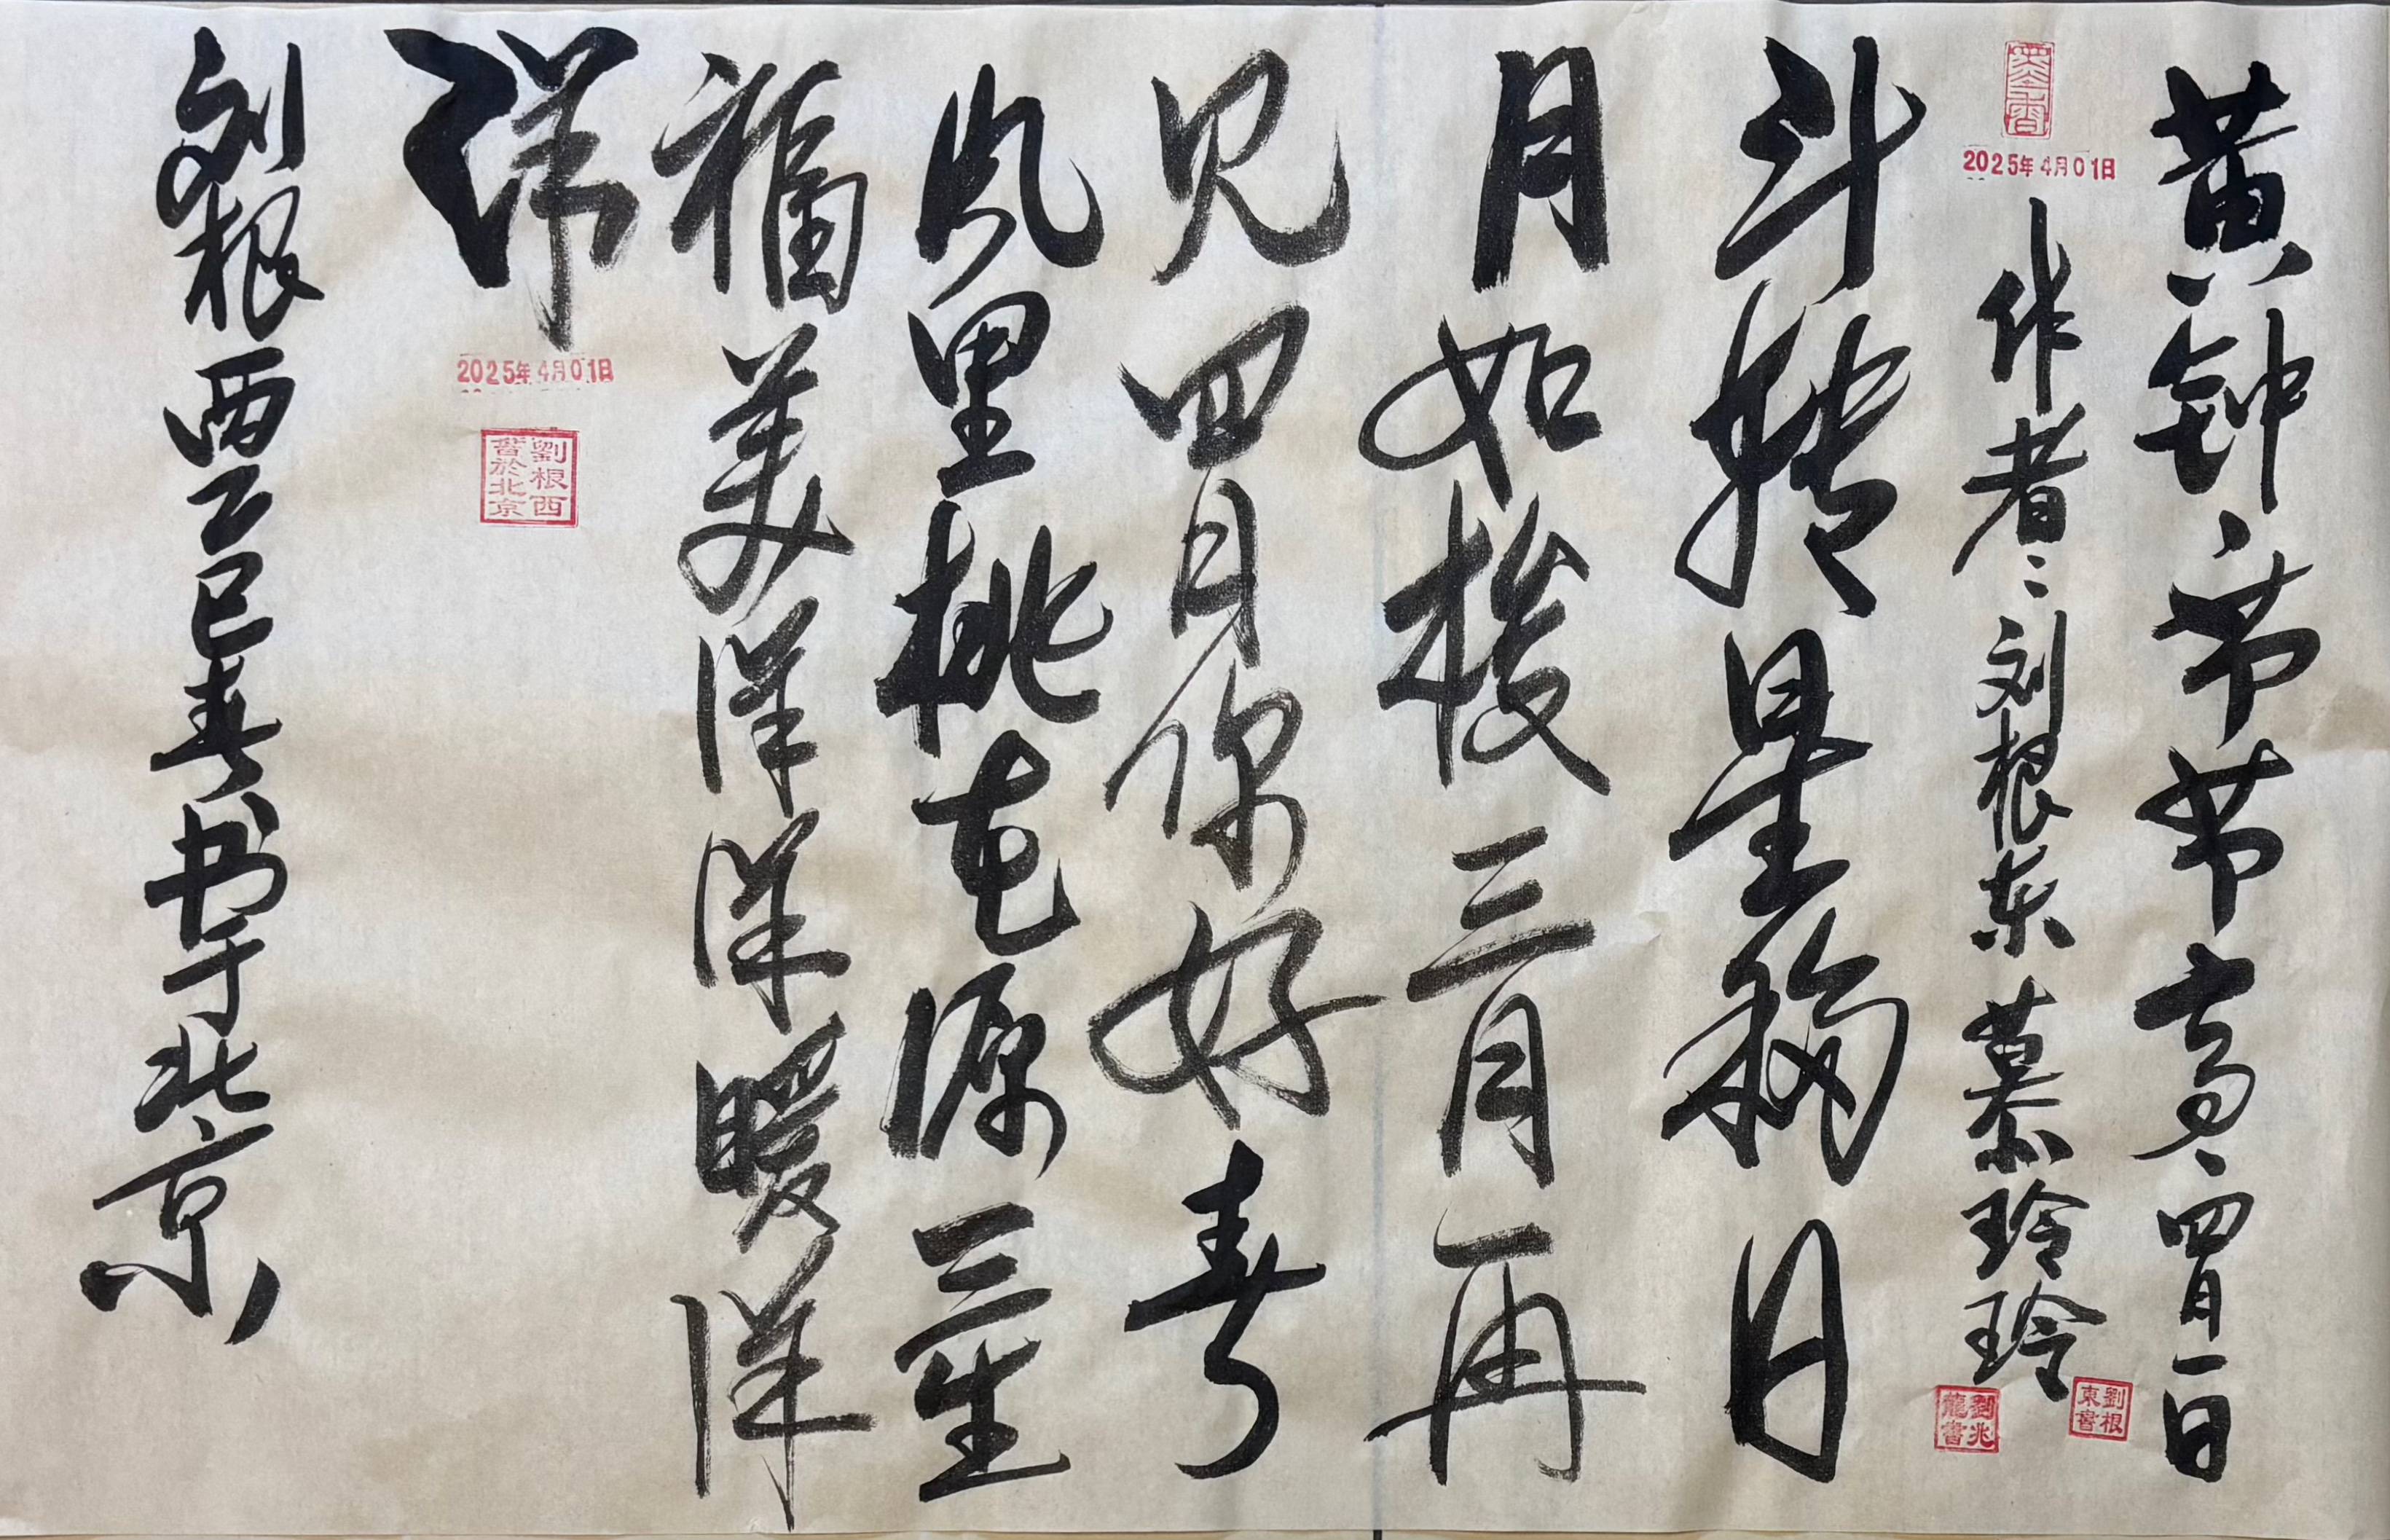 黄钟 节节高 四月一日
2025年4月01日
作者：刘根东 慕玲玲
劉根東書
劉兆龍書
斗转星移日
月如梭三月再
见四月你好春
风里桃花源三生
福美洋洋暖洋
洋
2025年4月01日
劉根西書於北京
刘根西乙巳春书于北京